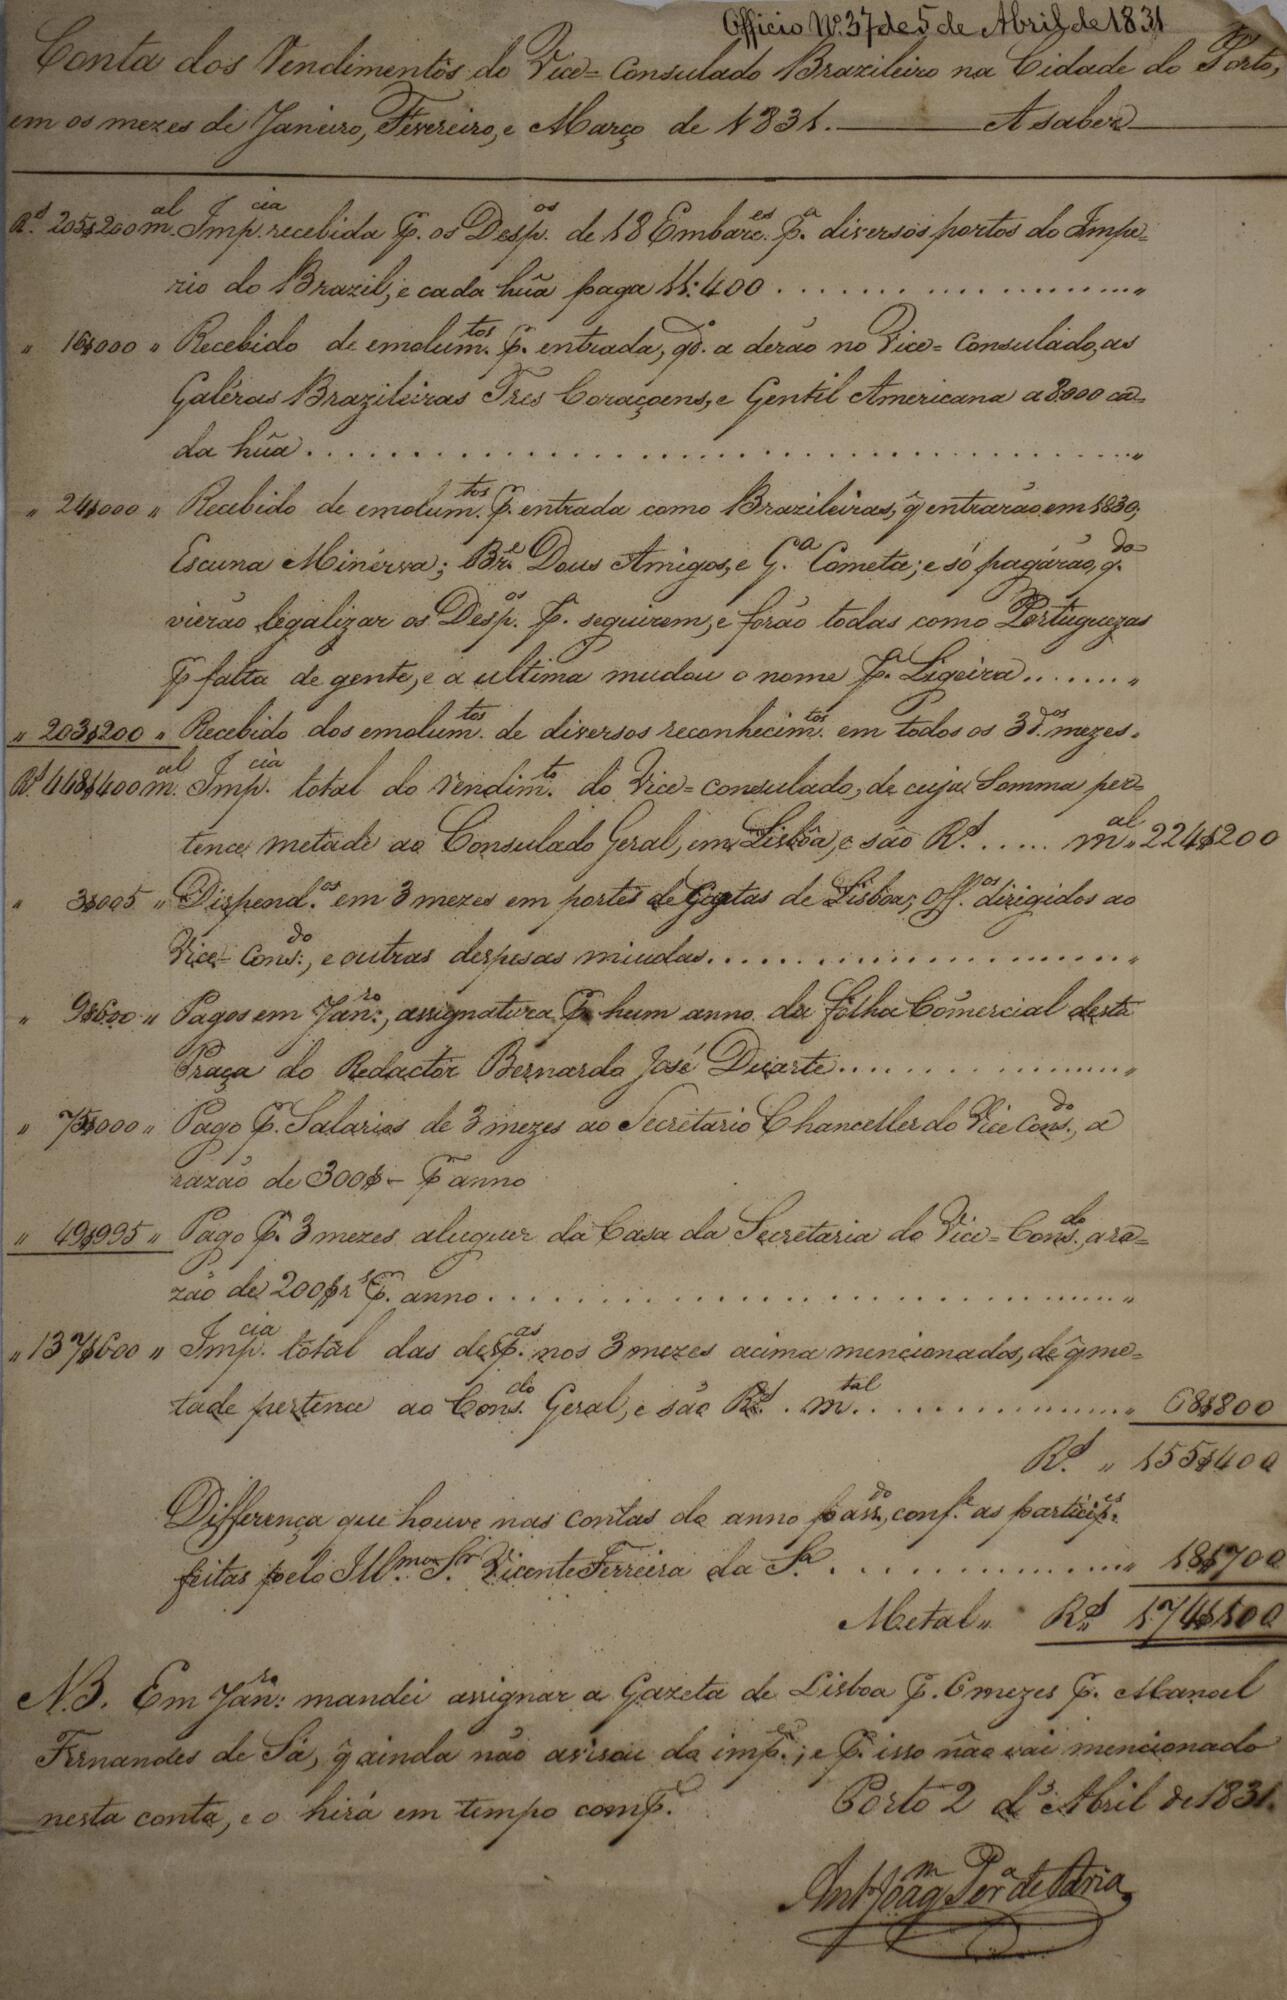 Officio Nº. 37 de 5 de Abril de 1831
Conta dos Vendimentos do Vice=Consulado Brazileiro na Cidade do Porto,
em os mezes de Janeiro, Fevereiro, e Março de 1831. A saber
R.s 205$200 m.al Imp.cia recebida p. os Desp.os de 18 Embarc.es p.a diversos portos do Impe=
rio do Brazil, e cada hũa paga 11:400
" 16$000 " Recebido de emolum.tos p. entrada, qd.o a derão no Vice=Consulado, as
Galéras Brazileiras Tres Coraçoens, e Gentil Americana a 8:000 ca=
da hũa
" 24$000 " Recebido de emolum.tos p. entrada como Brazileiras, q̃ entrarão em 1830,
Escuna Minérva; Br.e Dous Amigos, e G.a Cometa; e só pagárão, q.do
vierão legalizar os Desp.os p.a seguirem, e forão todas como Portuguezas
p falta de gente, e a ultima mudou o nome p.a Ligeira
" 203$200 " Recebido dos emolum.tos de diversos reconhecim.tos em todos os 3 d.os mezes.
R.s 448$400 m.al Imp.cia total do vendim.to do Vice=consulado, de cuja Somma per=
tence metade ao Consulado Geral, em Lisbôa, e são R.s m.al " 224$200
" 3$005 " Dispend.os em 3 mezes em portes de Cartas de Lisboa, Off.os dirigidos ao
Vice=Cons.do, e outras despesas miudas
" 9$600 " Pagos em Jan.ro, assignatura p. hum anno da folha Comercial desta
Praça do Redactor Bernardo José Duarte
" 75$000 " Pago p. Salarios de 3 mezes ao Secretario Chanceller do Vice Cons.do, a
razão de 300$ - p anno
" 49$995 " Pago p. 3 mezes aluguer da Casa da Secretaria do Vice=Cons.do, a ra=
zão de 200$ r.s p. anno
" 137$600 " Imp.cia total das desp.as nos 3 mezes acima mencionados, de q̃ me=
tade pertence ao Cons.do Geral, e são R.s m.tal " 68$800
R.s " 155$400
Differença que houve nas contas do anno pass.do, conf.e as particip.es
feitas pelo Ill.mo S.r Vicente Ferreira da S.a " 18$700
Metal " R.s 174$100
N.B. Em Jan.ro: mandei assignar a Gazeta de Lisboa p. 6 mezes p. Manoel
Fernandes de Sá, q̃ ainda não avisou da imp.; e p. isso não vai mencionado
nesta conta, e o hirá em tempo comp.e Porto 2 d'Abril de 1831.
Ant.o Joaq.m Per.a de Faria